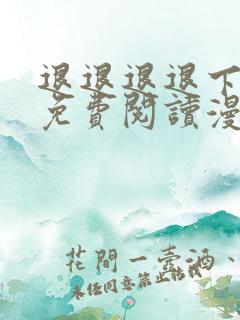 退退退退下
免費閱讀漫
花間一壺酒、
未任同意禁止轉載